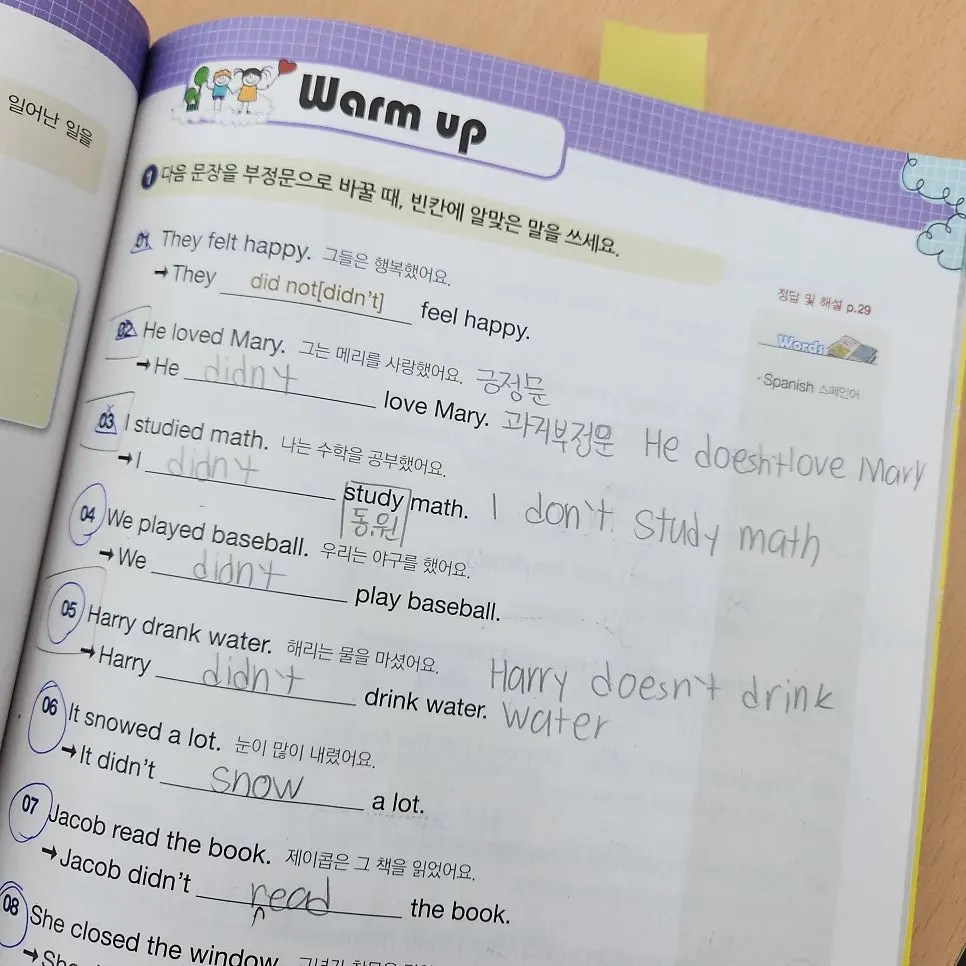 일어난 일을
Warm up
1 다음 문장을 부정문으로 바꿀 때, 빈칸에 알맞은 말을 쓰세요.
01 They felt happy. 그들은 행복했어요.
→ They did not[didn't] feel happy.
정답 및 해설 p.29
Words
· Spanish 스페인어
02 He loved Mary. 그는 메리를 사랑했어요. 긍정문
→ He didn't love Mary. 과거부정문 He doesn't love Mary
03 I studied math. 나는 수학을 공부했어요.
→ I didn't study math. I don't study math
동.원
04 We played baseball. 우리는 야구를 했어요.
→ We didn't play baseball.
05 Harry drank water. 해리는 물을 마셨어요.
→ Harry didn't drink water. Harry doesn't drink
water
06 It snowed a lot. 눈이 많이 내렸어요.
→ It didn't snow a lot.
07 Jacob read the book. 제이콥은 그 책을 읽었어요.
→ Jacob didn't read the book.
08 She closed the window.
→ She